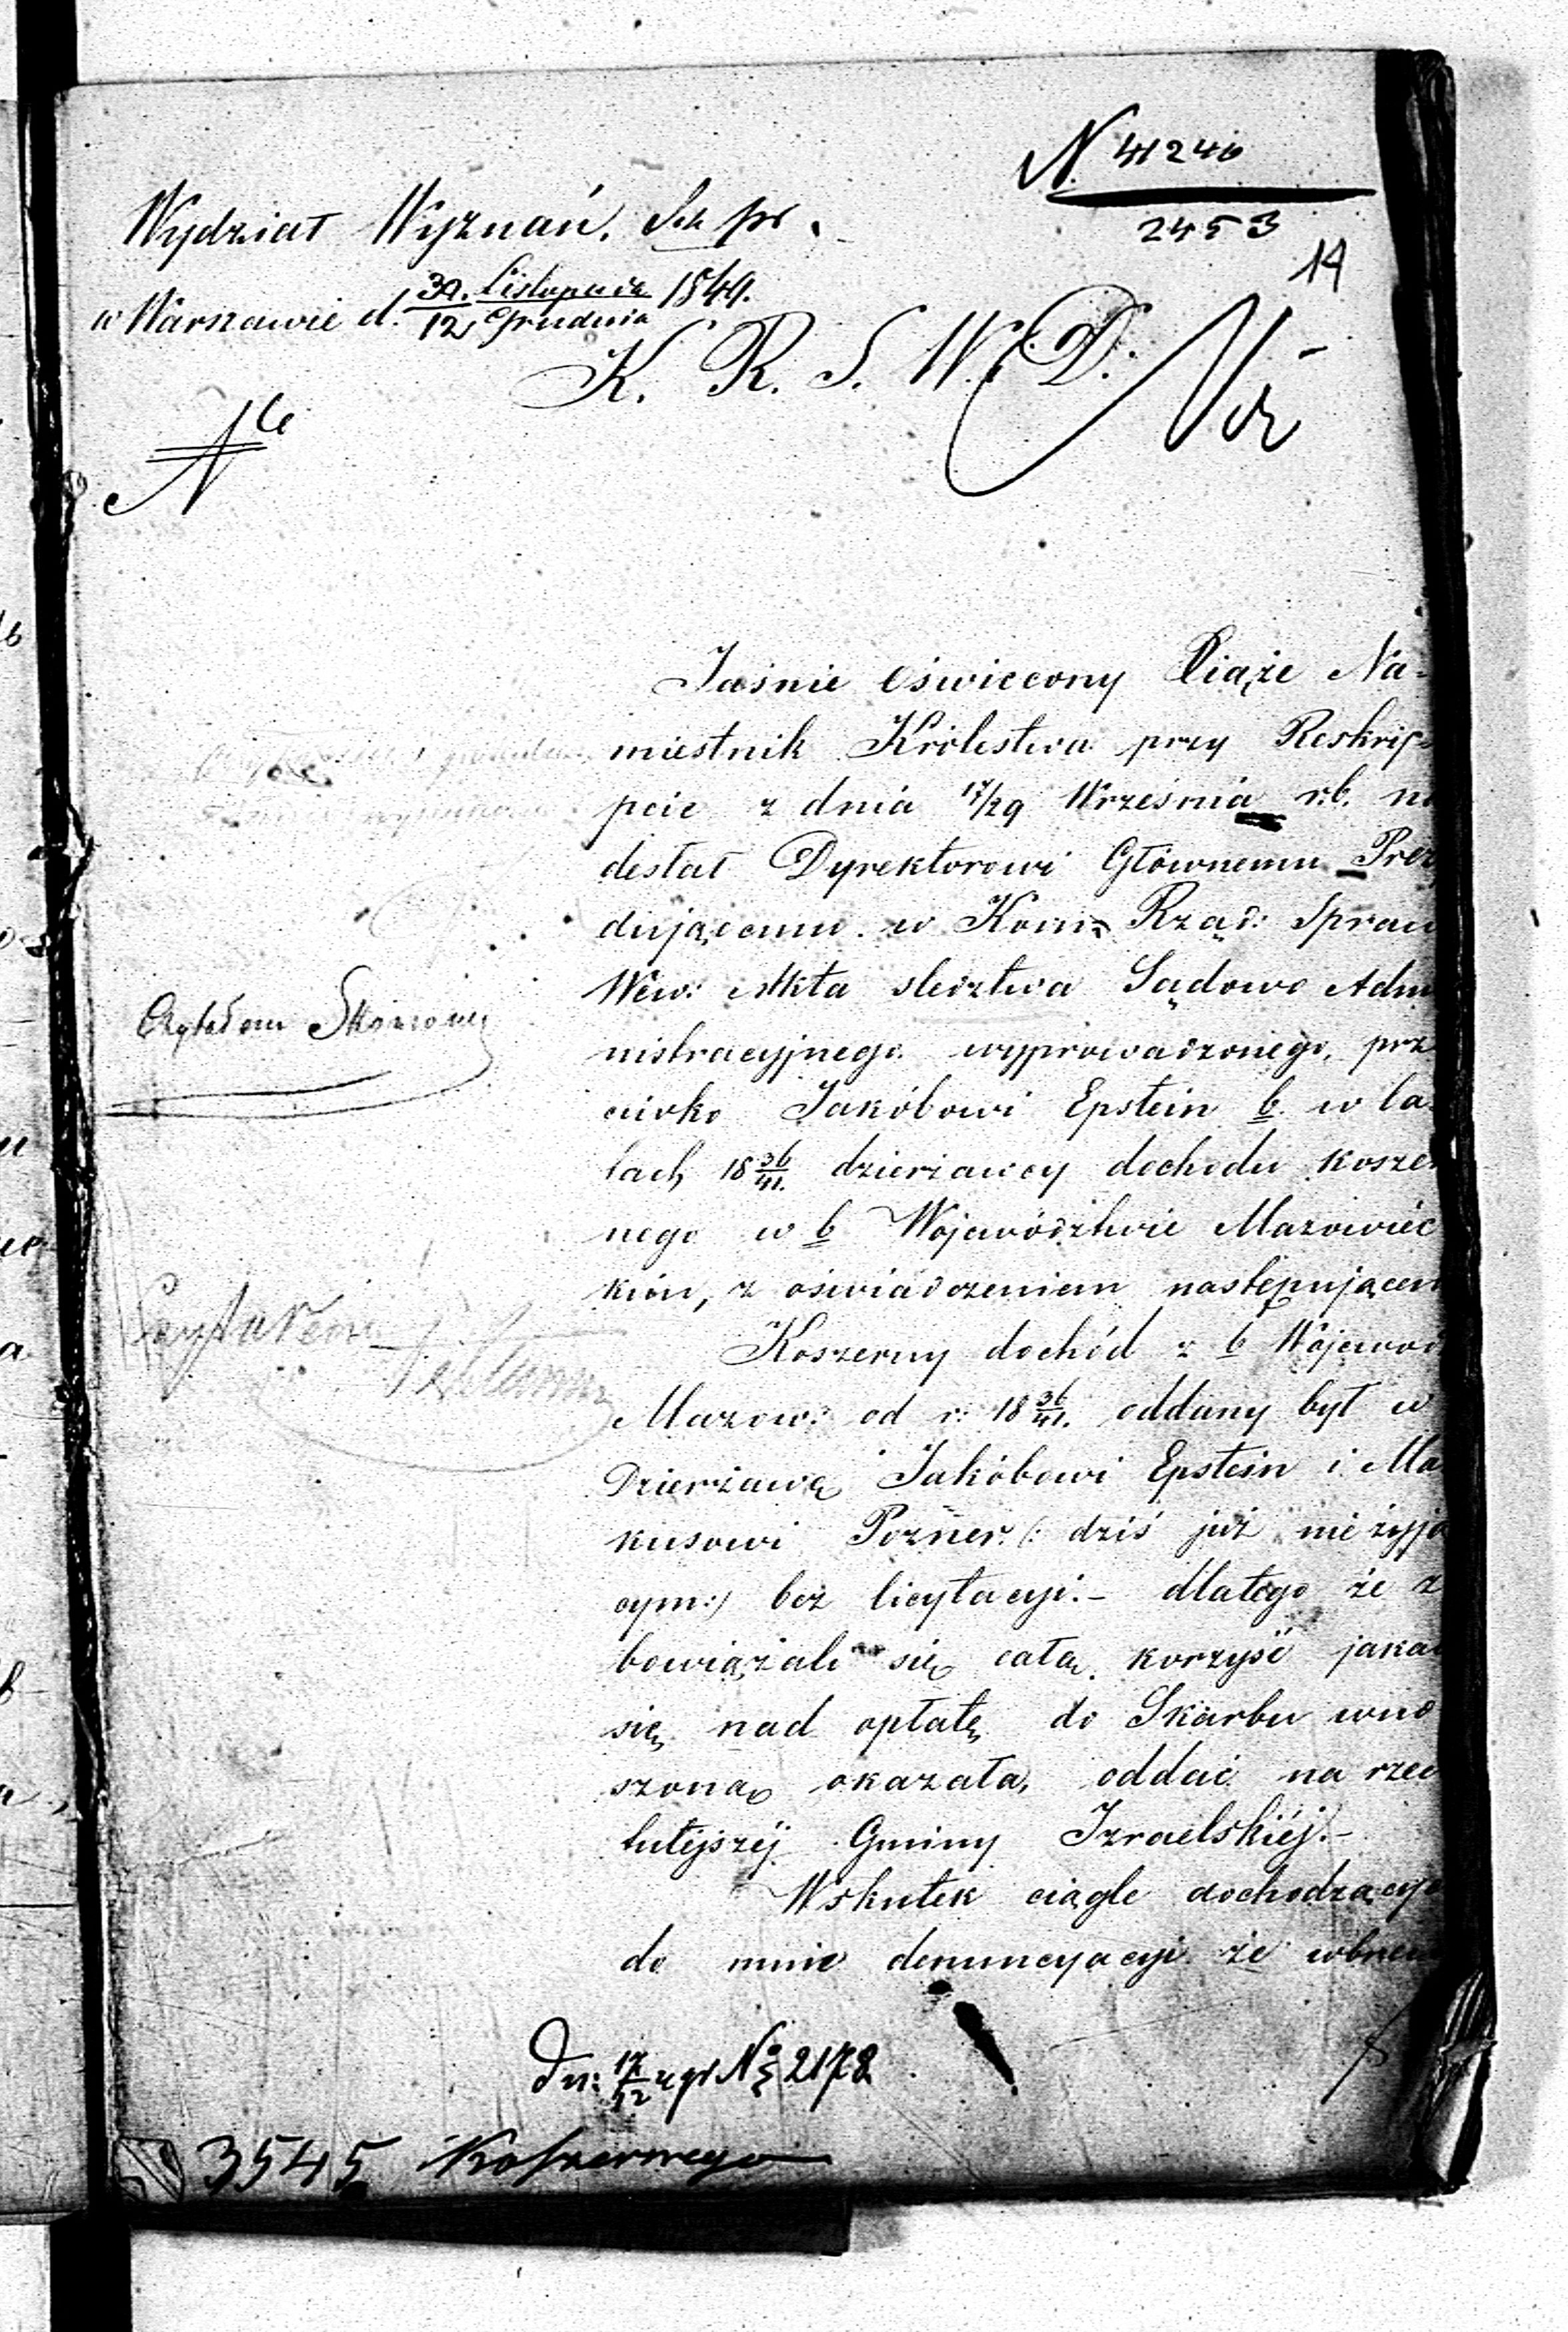 N. 41240
2453
14
Wydział Wyznań.
w Warszawie d. 30. Listopada / 12 Grudnia 1849.
K. R. S. W. i D.
Jaśnie Oświecony Xiąże Na-
miestnik Królestwa przy Reskryp-
pcie z dnia 17/29 Września r.b. na
desłał Dyrektorowi Głównemu Prezy
dującemu w Kom: Rząd: Spraw
Wew: Akta sledztwa Sądowo Admi
nistracyjnego wyprowadzonego, prze
ciwko Jakóbowi Epstein b. w la-
tach 18 36/41. dzierżawcy dochodu koszer
nego w b. Województwie Mazowiec
kiém, z oświadczeniem następującem
Koszerny dochód z b. Wojewod
Mazow: od r: 18 36/41. oddany był w
Dzierżawę Jakóbowi Epstein i Ma
kusowi Pozner (: dziś już nie żyją
cym:) bez licytacyi.- dlatego że z
bowiązali się całą korzyść jaka
się nad opłatę do Skarbu wno
szoną okazała, oddać na rzec
tutejszéj Gminy Izraelskiéj.-
Wskutek ciągle dochodzących
do mnie denuncyacyi że wbrew
Czytałem
Czytałem
Dn: 17/12 N° 2178
3545 Koszernego